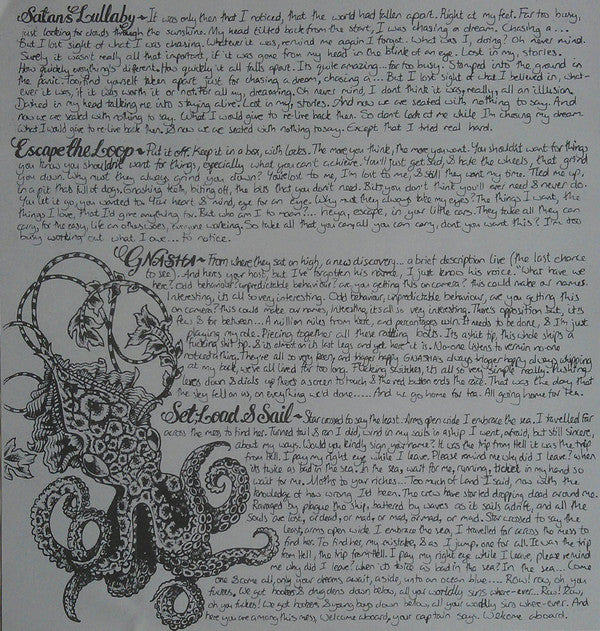 Satan's Lullaby ~ It was only then that I noticed, that the world had fallen apart. Right at my feet. Far too busy,
just looking for clouds through the sunshine. My head tilted back from the start, I was chasing a dream. Chasing a...
But I lost sight of what I was chasing. Whatever it was, remind me again I forget. What was I, doing? Oh never mind.
Surely it wasn't really all that important, if it was gone from my head in the blink of an eye. Lost in my, stories.
How quickly everything's different. How quickly it all falls apart. Its quite amazing... far too busy. Stamped into the ground in
the panic. Too, find yourself taken apart just for chasing a dream, chasing a... But I lost sight of what I believed in, what-
ever it was, if it was worth it or not. For all my, dreaming. Oh never mind, I dont think it was, really, all an illusion.
Danced in my head talking me into staying alive. Lost in my, stories. And now we are seated with nothing to say. And
now we are seated with nothing to say. What I would give to re-live back then. So dont look at me while I'm chasing my dream.
What I would give to re-live back then. & now we are seated with nothing to say. Except that I tried real hard.
Escape the Loop ~ Put it off. Keep it in a box, with locks. The more you think, the more you want. You shouldnt want for things
you know you shouldnt want for things, especially what you cant achieve. You'll just get sad, & hate the wheels, that grind
you down. Why must they always grind you down? You're lost to me, I'm lost to me, & still they want my time. Tied me up,
in a pit that full of dogs. Gnashing teeth, biting off, the bits that you dont need. But you dont think you'll ever need & never do.
You let it go, you wanted to. Your heart & mind, eye for an eye. Why must they always take my eyes? The things I want, the
things I love, that I'd give anything for. But who am I to moan?... heya, escape, in your little cars. They take all they can
carry, for the easy, life on otherside, everyone working. So take all that you can, all you can carry, dont you want this? I'm too
busy working out what I owe.... to notice.
GNASHA ~ From where they sat on high, a new discovery... a brief description live (the last chance
to see). And heres your host, but I've forgotten his name, I just know his voice. "What have we
here? odd behaviour unpredictable behaviour, are you getting this on camera? this could make our names.
Interesting, its all so very interesting. Odd behaviour, unpredictable behaviour, are you getting this
on camera? this could make our names, interesting, its all so very interesting. There's opposition but, its
few & far between... A million miles from here, and percentages win. It needs to be done, & I'm just
playing my role. Piecing together all these rattling bolts. Its a shit tip, this whole ship's a
fucking shit tip, & its almost on its last legs, and yet here it is. No-one listens to vermin no one
noticed a thing. They're all so very keen, and trigger happy GNASHA's always trigger happy always chipping
at my back, we've all lived for too long. Flicking switches, its all so very simple really. Pushing
levers down & dials up fixes a screen to touch & the red button ends the race. That was the day that
the sky fell on us, on everything we'd done.... And we go home for tea. All going home for tea.
Set, Load & Sail ~ Star crossed to say the least. Arms open wide I embrace the sea. I travelled far
across the mess to find her. Turned tail & ran I did, wind in my sails a ship I went, afraid, but still sincere,
about my ways. Would you kindly sign, your name? It was the trip from Hell it was the trip
from Hell. I pay my right eye while I leave. Please remind me why did I leave? when
its twice as bad in the sea. In the sea, wait for me, running, ticket in my hand so
wait for me. Moths to your riches... Too much of land I said, now with the
knowledge of how wrong I'd been. The crew have started dropping dead around me.
Ravaged by plague the ship, battered by waves as it sails adrift, and all the
souls are lost, or dead, or mad, or mad, or mad, or mad. Star crossed to say the
least, arms open wide I embrace the sea, I travelled far across the mess to
find her. To find her, my mistake, & as I jump, one for all. It was the trip
from Hell, the trip from Hell. I pay my right eye while I leave, please remind
me why did I leave? when its twice as bad in the sea? In the sea.... Come
one & come all, only your dreams await, aside, unto an ocean blue.... Row! row, oh you
fuckers, We got hookers & drug dens down below, all you worldly sins where-ever. Row! Row,
oh you fuckers! We got hookers & young boys down below, all your worldly sins where-ever. And
here you are among this mess, welcome aboard, your captain says. Welcome aboard.